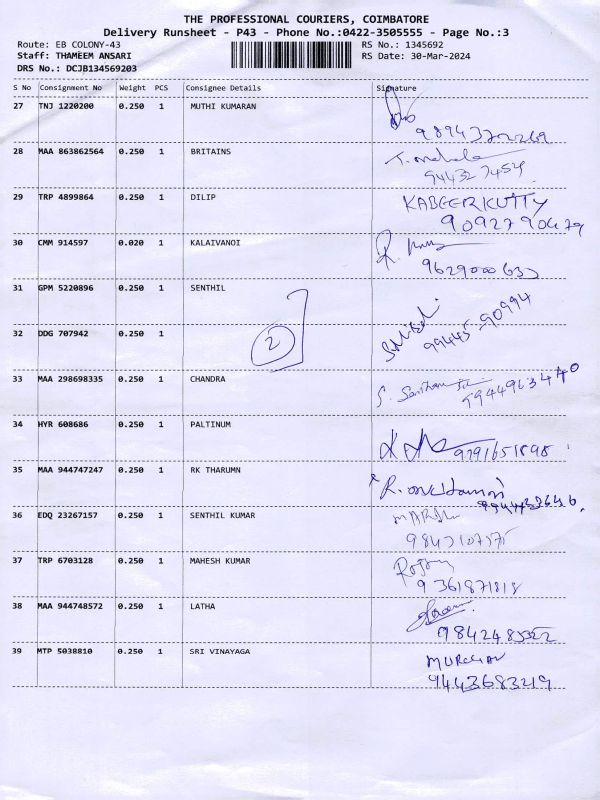 THE PROFESSIONAL COURIERS, COIMBATORE
Delivery Runsheet - P43 - Phone No.:0422-3505555 - Page No.:3
Route: EB COLONY-43 RS No.: 1345692
Staff: THAMEEM ANSARI RS Date: 30-Mar-2024
DRS No.: DCJB134569203
S No Consignment No Weight PCS Consignee Details Signature
27 TNJ 1220200 0.250 1 MUTHI KUMARAN
28 MAA 863862564 0.250 1 BRITAINS
944327454
29 TRP 4899864 0.250 1 DILIP KABEERKUTTY
9092790479
30 CMM 914597 0.020 1 KALAIVANOI
9629000633
31 GPM 5220896 0.250 1 SENTHIL
99445-90994
32 DDG 707942 0.250 1
2
33 MAA 298698335 0.250 1 CHANDRA
9944963440
34 HYR 608686 0.250 1 PALTINUM
9791651898
35 MAA 944747247 0.250 1 RK THARUMN
36 EDQ 23267157 0.250 1 SENTHIL KUMAR
37 TRP 6703128 0.250 1 MAHESH KUMAR
9361871818
38 MAA 944748572 0.250 1 LATHA
39 MTP 5038810 0.250 1 SRI VINAYAGA MURUGAN
9443683219